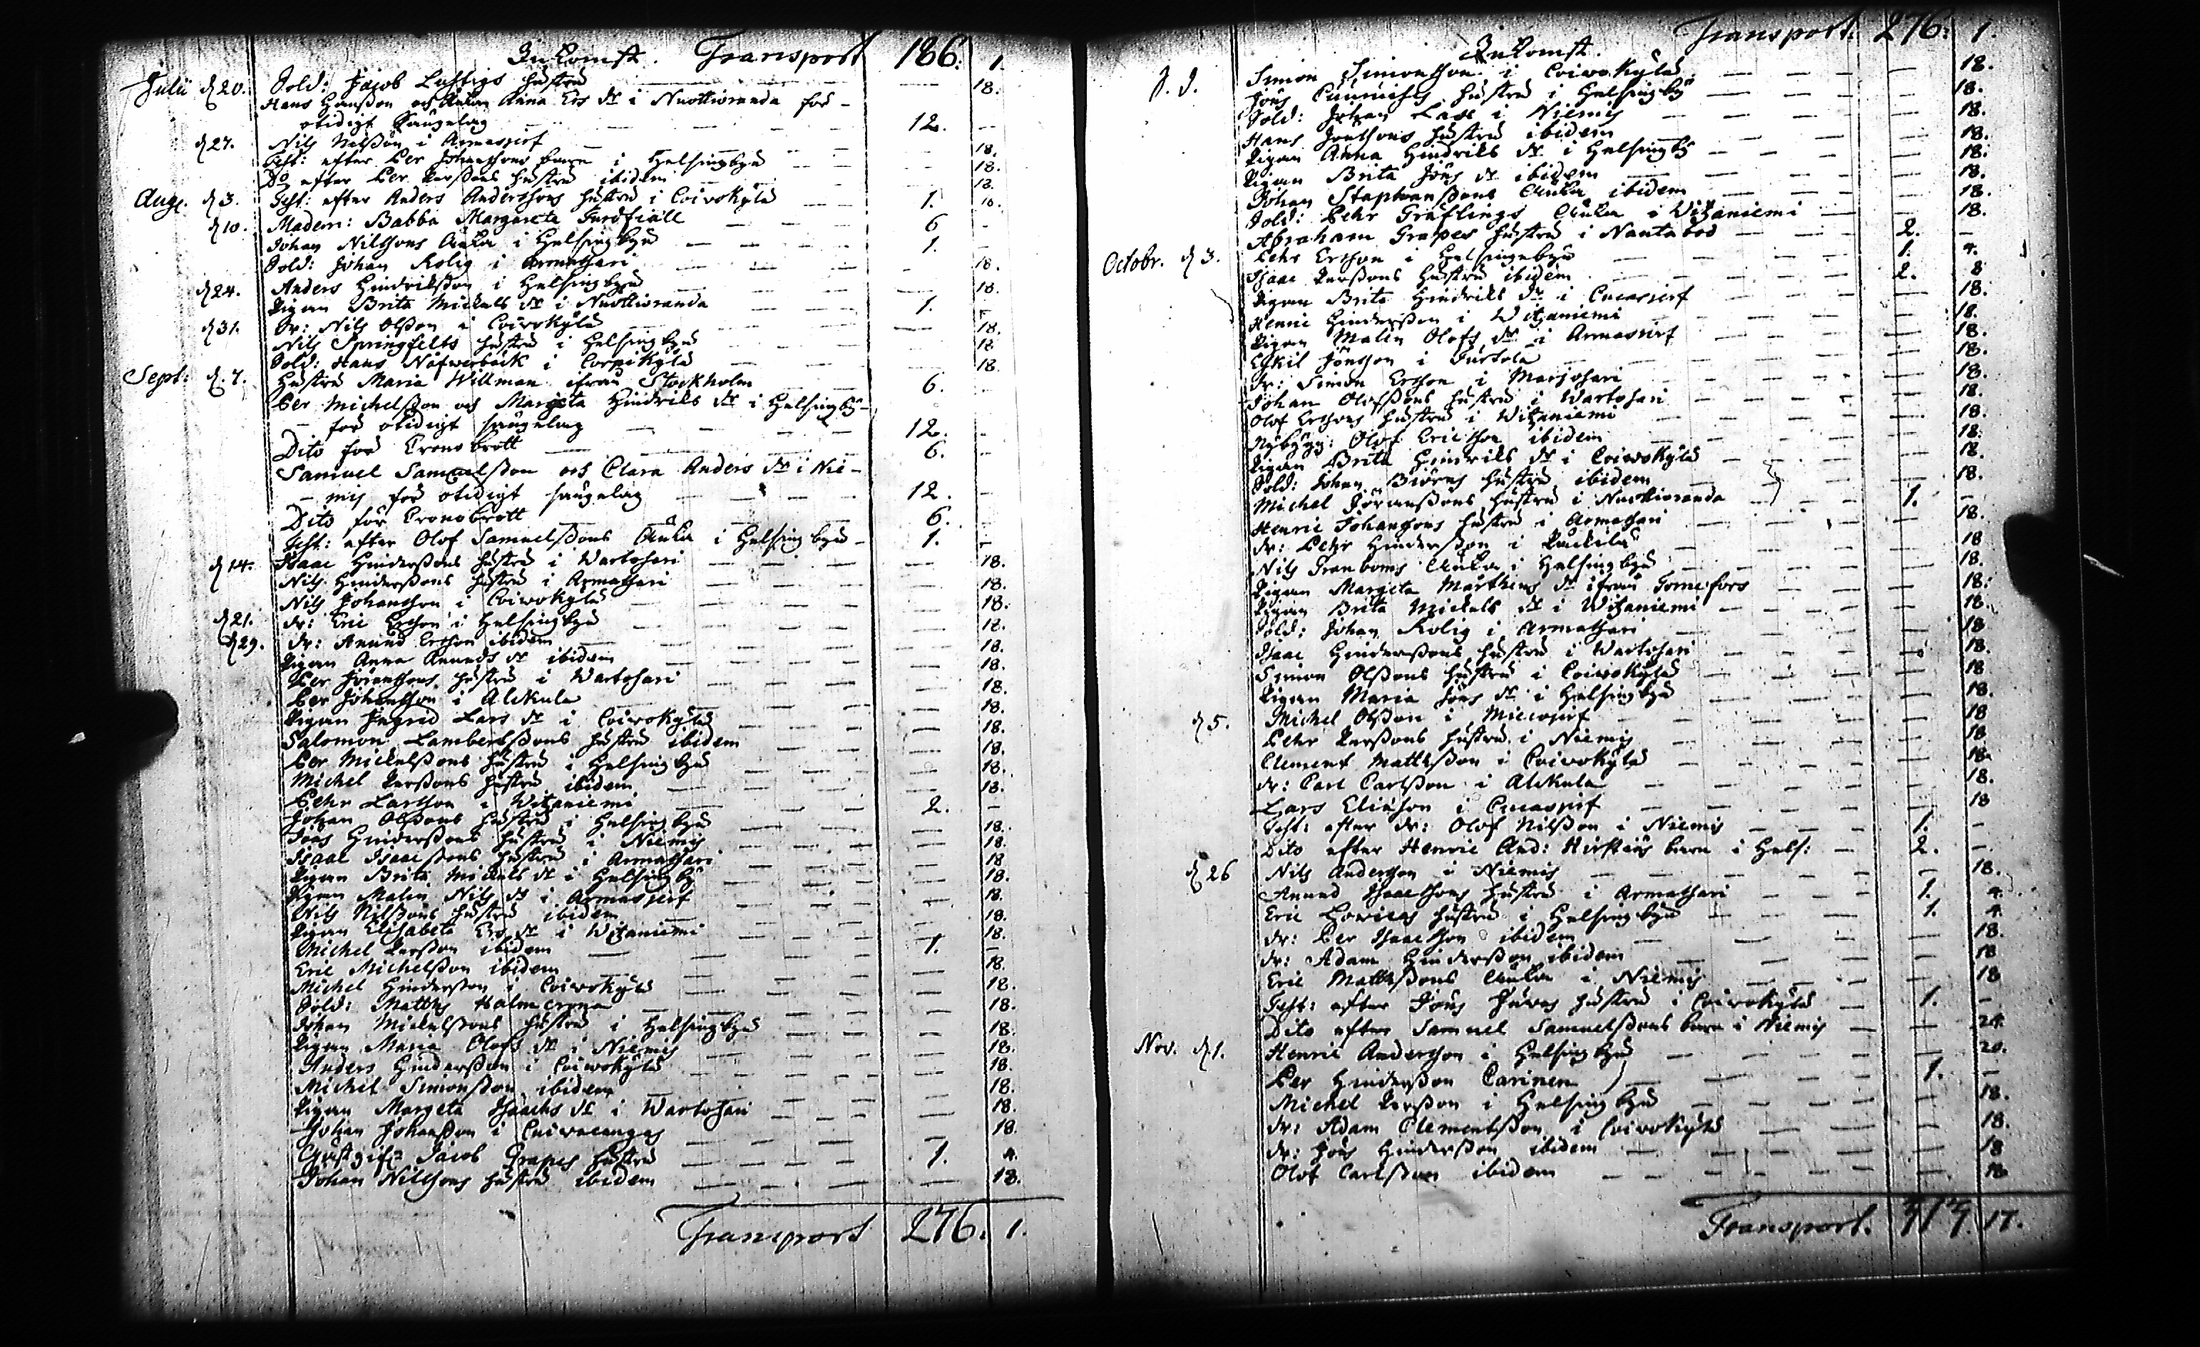 Inkomst. Transport 186. 1.
Julii d 20. Sold: Jacob Lustigs hustru — 18.
Hans Hansson och Änkan Anna Ers dr i Nuottioranda för
otidigt Sängelag — 12. —
d 27. Nils Nilsson i Armasjerf — 18.
Test: efter Per Johanssons barn i Helsingbyn — 18.
Do efter Per Perssons hustru ibidem — 18.
Aug. d 3. Test: efter Anders Anderssons hustru i Coivokylä — 1. 16.
d 10. Madem: Babba Margareta Turdfiäll 6 —
Johan Nilssons Änka i Helsingbyn — 1. —
Sold: Johan Rolig i Armassari — 18.
d 24. Anders Hindriksson i Helsingbyn — 18.
Pigan Brita Mickels dr i Nuottioranda — 1. —
d 31. Dr: Nils Olsson i Coivokylä — 18.
Nils Springfelts hustru i Helsingbyn — 18
Sold: Hans Näfwerbäck i Corpikylä — 18.
Sept: d. 7. Hustru Maria Willman ifrån Stockholm — 6. —
Per Michelsson och Margeta Hindriks dr i Helsingby
för otidigt sängelag — 12. —
Dito för Cronobrott — 6. —
Samuel Samuelsson och Clara Anders dr i Nie-
mis för otidigt sängelag — 12. —
Dito för Cronobrott — 6. —
Test: efter Olof Samuelssons Änka i Helsingbyn — 1. —
d 14. Isaac Hinderssons hustru i Wartosari — 18.
Nils Hinderssons hustru i Armassari — 18.
Nils Johansson i Coivokylä — 18.
d 21. dr: Eric Ersson i Helsingbyn — 18.
d 29. dr: Anund Ersson ibidem — 18.
Pigan Anna Anunds dr ibidem — 18.
Per Göranssons hustru i Wartosari — 18.
Per Johansson i Alkula — 18.
Pigan Ingrid Lars dr i Coivokylä — 18.
Salomon Lambertssons hustru ibidem — 18.
Per Mickelssons hustru i Helsingbyn — 18.
Michel Perssons hustru ibidem — 18.
Pehr Larsson i Witzaniemi — 2. —
Johan Olssons hustru i Helsingbyn — 18.
Jöns Hinderssons hustru i Niemis — 18.
Isaac Isaacssons hustru i Armassari — 18
Pigan Brita Mickels dr i Helsingby — 18.
Pigan Malin Nils dr i Armasjerf — 18.
Nils Nilssons hustru ibidem — 18.
Pigan Elisabeta Ers dr i Witzaniemi — 18.
Michel Persson ibidem — 1. —
Eric Michelsson ibidem — 18.
Michel Hindersson i Coivokylä — 18.
Sold: Matths Halmcrona — 18.
Johan Mickelssons hustru i Helsingbyn — 18.
Pigan Maria Olofs dr i Niemis — 18.
Anders Hindersson i Coivokylä — 18.
Michel Simonsson ibidem — 18.
Pigan Margeta Isaachs dr i Wartosari — 18.
Johan Johansson i Cuivacangas — 18.
Gästgif: Jacob Grapes hustru — 1. 4.
Johan Nilssons hustru ibidem — 18.
Transport 276. 1.
Transport. 276. 1.
Inkomst.
Simon Simonsson i Coivokylä — 18.
Jöns hustru i Helsingby — 18.
Sold: Johan Lax i Niemis — 18.
Hans Jonssons hustru ibidem — 18.
Pigan Anna Hindriks dr i Helsingby — 18.
Pigan Brita Jöns dr ibidem — 18.
Johan Staphanssons Änka ibidem — 18.
Sold: Pehr Gräflings Änka i Witzaniemi — 18.
Abraham Grapes hustru i Nautabod — 2. —
Octobr. d 3. Pehr Ersson i Helsingebyn — 1. 4.
Isaac Perssons hustru ibidem — 2. 8
Pigan Brita Hindriks dr i Cucasjerf — 18.
Henric Hindersson i Witzaniemi — 18.
Pigan Malin Olofs dr i Armasjerf — 18.
Eskil Jönsson i Turtola — 18.
Dr: Simon Ersson i Marjosari — 18.
Johan Olofssons hustru i Wartosari — 18.
Olof Erssons hustru i Witzaniemi — 18.
Nybygg: Olof Ericsson ibidem — 18.
Pigan Brita Hindriks dr i Coivokylä — 18.
Sold: Johan Biörns hustru ibidem — 18.
Michel Göranssons hustru i Nuottioranda — 1. —
Henric Johanssons hustru i Armassari — 18.
dr: Pehr Hindersson i — 18
Nils Granboms Änka i Helsingbyn — 18.
Pigan Margeta Mårthens dr ifrån Tornefors — 18.
Pigan Brita Mickels dr i Witzaniemi — 18.
Sold: Johan Rolig i Armassari — 18
Isaac Hinderssons hustru i Wartosari — 18.
Simon Olssons hustru i Coivokylä — 18
Pigan Maria Jöns dr i Helsingbyn — 18.
d 5. Michel Olsson i Miecojerf — 18
Pehr Perssons hustru i Niemis — 18
Clement Mattsson i Coivokylä — 18.
dr: Carl Carlsson i Alkula — 18.
Lars Eliasson i Cucasjerf — 18
Test: efter dr: Olof Nilsson i Niemis — 1. —
Dito efter Henric And: barn i Hels: — 2. —
d 26 Nils Andersson i Niemis — 18.
Anund Isaacssons hustru i Armassari — 1. 4.
Eric hustru i Helsingbyn — 1. 4
dr: Per Isaacsson ibidem — 18.
dr: Adam Hindersson ibidem — 18
Eric Mattssons Änka i Niemis — 18
Test: efter Jöns hustru i Coivokylä — 1. —
Dito efter Samuel Samuelssons barn i Niemis — 24.
Nov. d 1. Henric Andersson i Helsingbyn — 20.
Per Hindersson Carinen — 1. —
Michel Persson i Helsingbyn — 18.
dr: Adam Clementsson i Coivokylä — 18.
dr: Jöns Hindersson ibidem — 18
Olof Carlsson ibidem — 18
Transport. 313. 17.